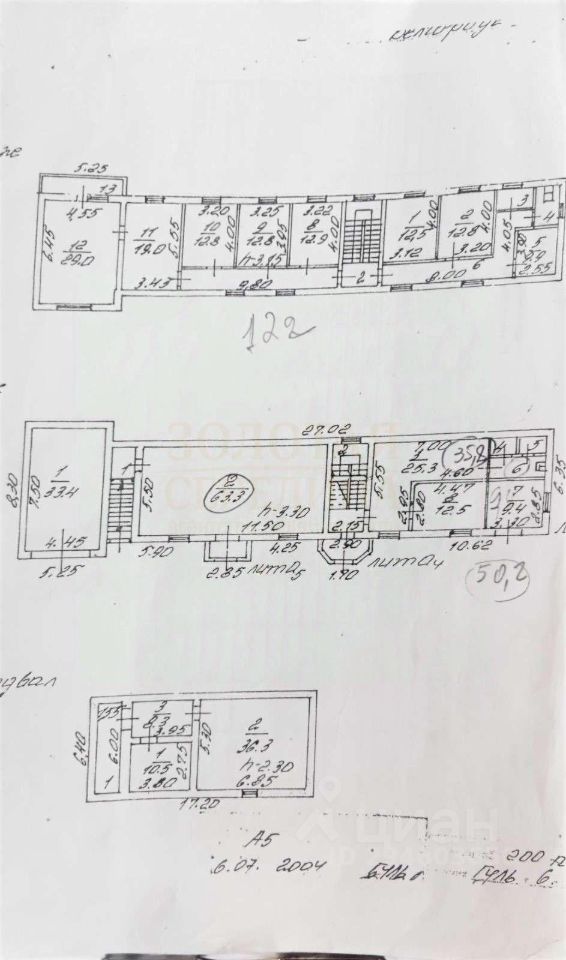 5.25
13
4.55
6.45
12
29.0
11
19.0
5.55
3.43
3.20
10
12.8
4.00
3.25
9
12.8
3.95
h-3.15
3.22
8
12.9
4.00
9.80
2
1
12.3
4.00
3.12
2
12.8
4.00
3.20
8.00
6
4.05
3
4
5
2.55
122
27.02
ЗОЛОТАЯ
8.20
7.50
1
33.4
4.45
5.25
1
5.50
2
63.3
h-3.30
11.50
5.90
2.85
лит а5
4.25
2
2.15
2.90
1.90
лит а4
5.55
7.00
1
25.3
4.60
35,2
4.47
8
12.5
2.05
2.80
4
5
6
7
9.4
2.85
3.30
6.35
10.62
50,2
6.40
1.55
6.00
1
3
8.3
3.95
1
10.5
2.75
3.80
5.30
2
36.3
h-2.30
6.85
17.20
циан
А5
6.07. 2004
200